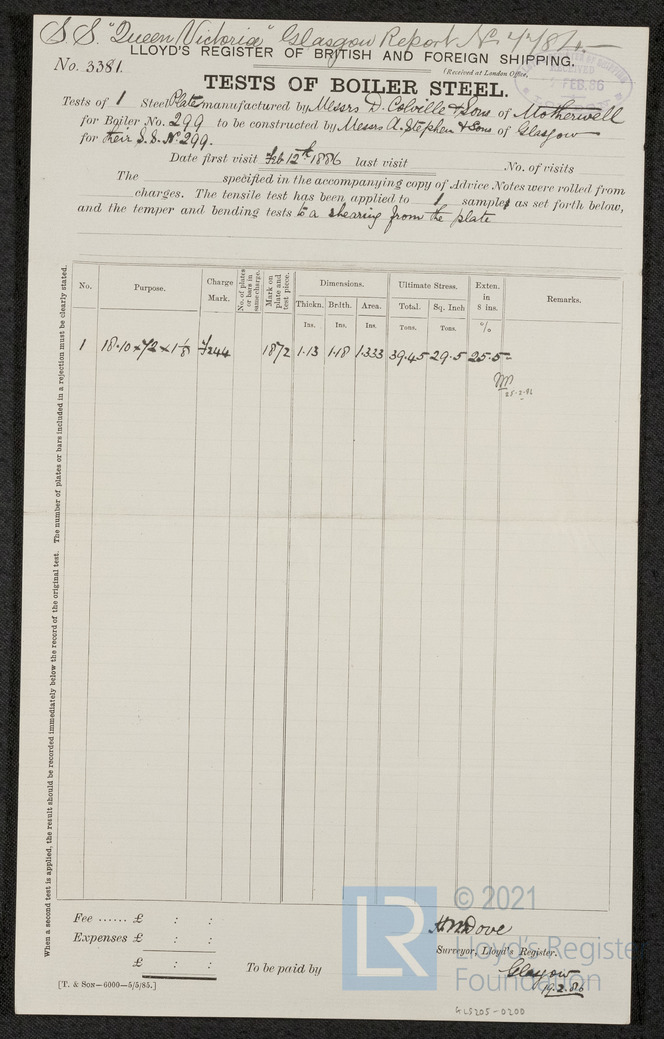 S.S. "Queen Victoria" Glasgow Report No
LLOYD'S REGISTER OF BRITISH AND FOREIGN SHIPPING.
No. 3381.
(Received at London Office,
FEB.86
TESTS OF BOILER STEEL.
Tests of 1 Steel Plate manufactured by Messrs D. Colville & Sons of Motherwell
for Boiler No. 299 to be constructed by Messrs A. Stephen & Sons of Glasgow
for their S.S. No 299.
Date first visit Feb 12th 1886 last visit No. of visits
The specified in the accompanying copy of Advice Notes were rolled from
charges. The tensile test has been applied to 1 samples as set forth below,
and the temper and bending tests to a shearing from the plate
No. Purpose. Charge Mark. No. of plates or bars in same charge. Mark on plate and test piece. Dimensions. Ultimate Stress. Exten. in 8 ins. Remarks.
Thickn. Br.dth. Area. Total. Sq. Inch
Ins. Ins. Ins. Tons. Tons. %
1 18.10 x 72 x 1 1/8 1872 1.13 1.18 1.333 39.45 29.5 25.5
When a second test is applied, the result should be recorded immediately below the record of the original test. The number of plates or bars included in a rejection must be clearly stated.
Fee ...... £ : :
Expenses £ : :
£ : :
To be paid by
Surveyor, Lloyd's Register.
Glasgow
19.2.86
[T. & SON—6000—5/5/85.]
LR
© 2021
Lloyd's Register
Foundation
GLS205-0200